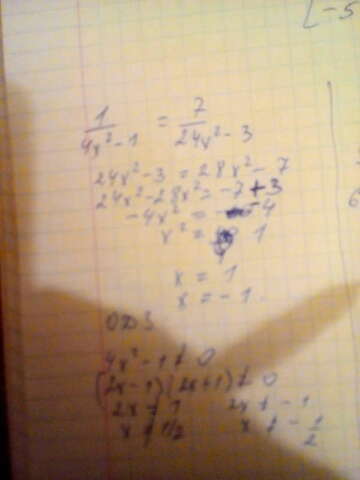 [-5
1/(4x²-1) = 7/(24x²-3)
24x²-3 = 28x²-7
24x²-28x² = -7+3
-4x² = -4
x² = 1
x = 1
x = -1.
ОДЗ
4x²-1 ≠ 0
(2x-1)(2x+1) ≠ 0
2x ≠ 1 2x ≠ -1
x ≠ 1/2 x ≠ -1/2